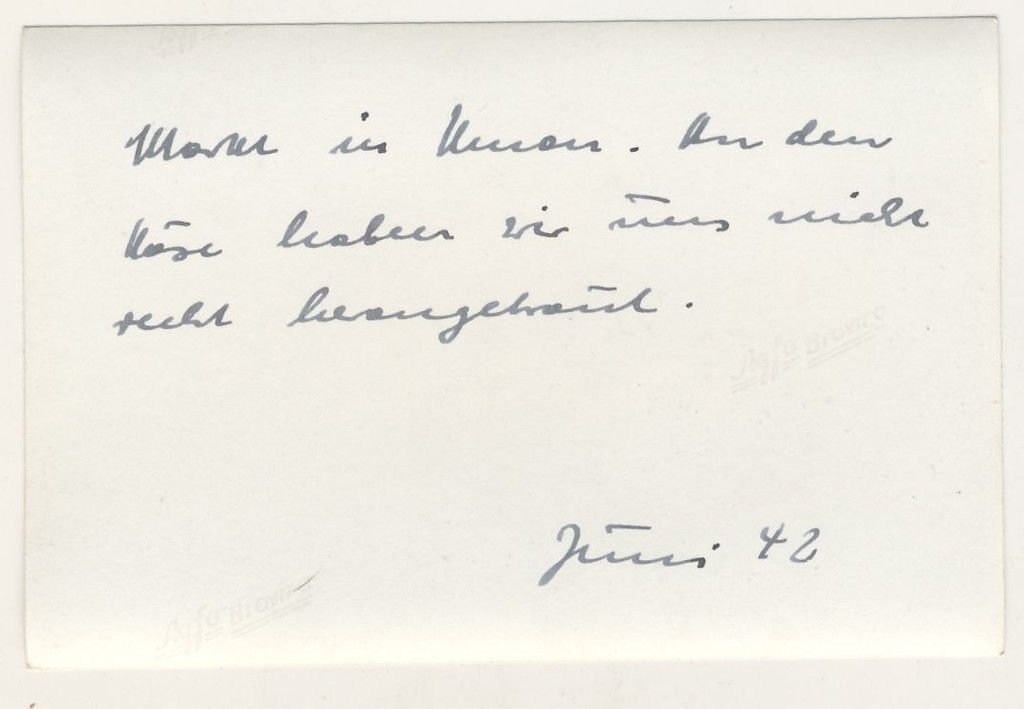 Markt in Uman. An den
Käse haben wir uns nicht
recht herangetraut.
Agfa Brovira
Juni 42
Agfa Brovira